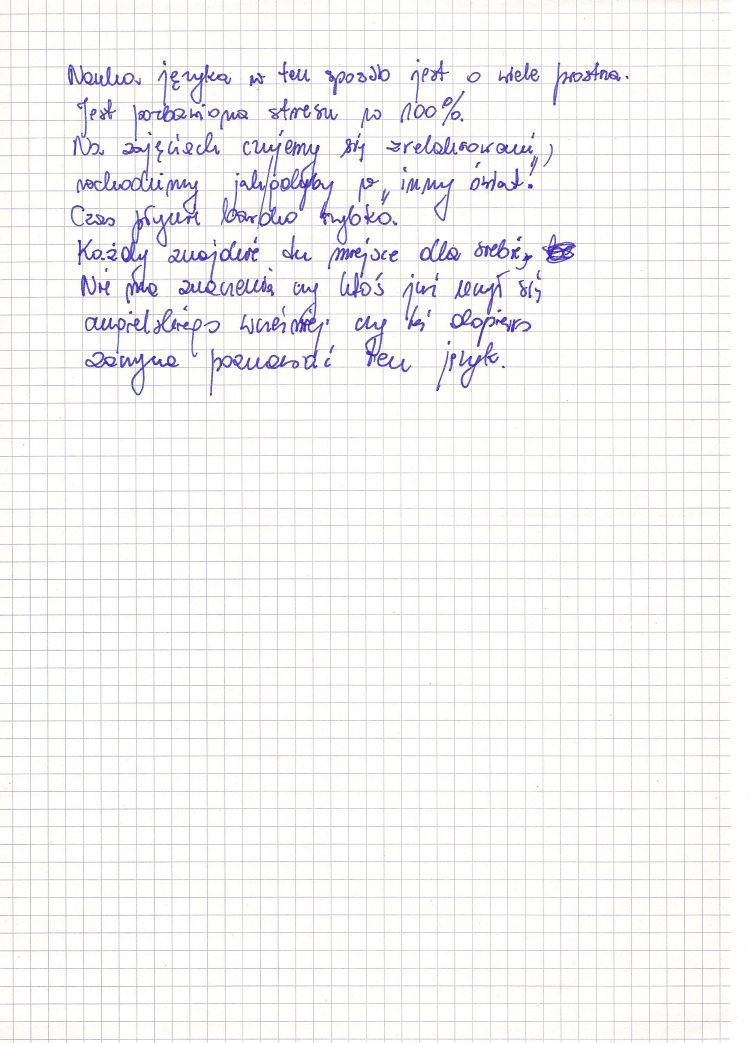 Nauka języka w ten sposób jest o wiele prostsza.
Jest pozbawiona stresu w 100%.
Na zajęciach czujemy się zrelaksowani,
wchodzimy jak gdyby w „inny świat".
Czas płynie bardzo szybko.
Każdy znajdzie tu miejsce dla siebie,
Nie ma znaczenia czy ktoś już uczył się
angielskiego wcześniej czy też dopiero
zaczyna poznawać ten język.